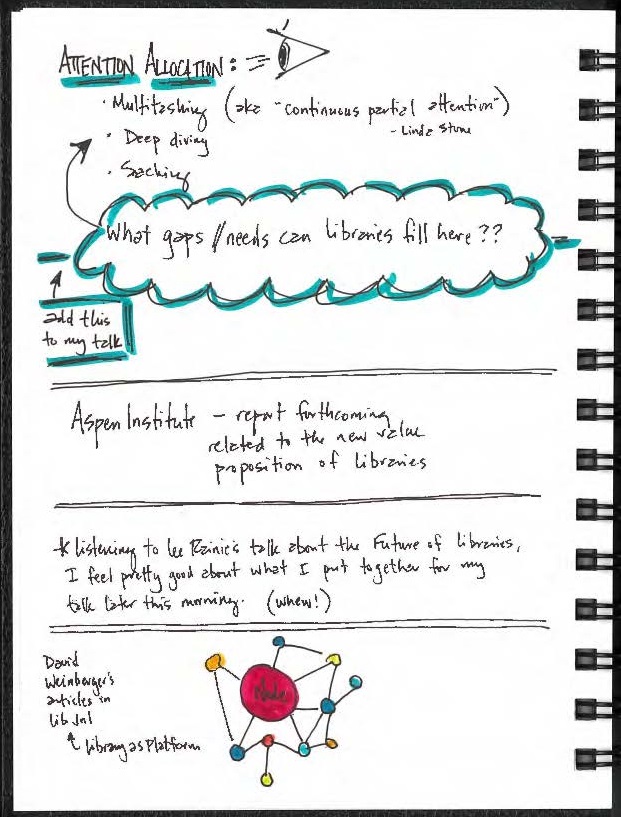 ATTENTION ALLOCATION:
· Multitasking (aka "continuous partial attention")
- Linda Stone
· Deep diving
· Snacking
What gaps//needs can libraries fill here??
add this
to my talk
Aspen Institute - report forthcoming
related to the new value
proposition of libraries
* listening to Lee Rainie's talk about the Future of libraries,
I feel pretty good about what I put together for my
talk later this morning. (whew!)
David
Weinberger's
articles in
Lib Jnl
Library as Platform